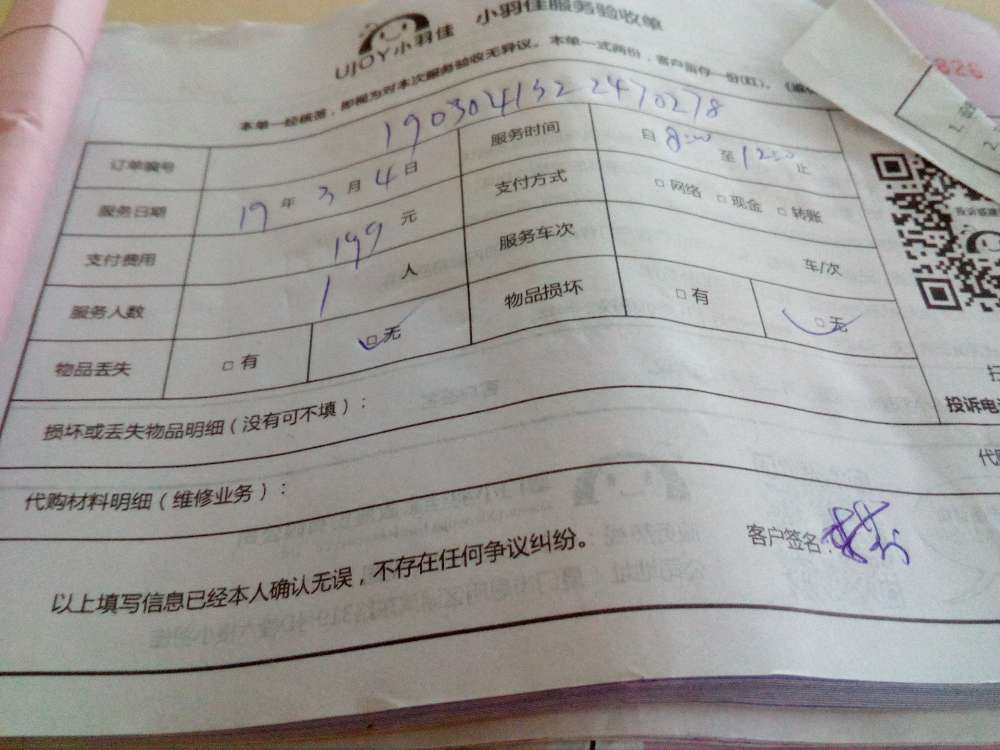 UJOY小羽佳 小羽佳服务验收单
本单一经核签，即视为对本次服务验收无异议。本单一式两份，客户留存一份(红)，
订单编号 1903041522470278
服务日期 19年3月4日 服务时间 自8:00至12:00止
支付费用 199元 支付方式 □网络 □现金 □转账
服务人数 1人 服务车次 车/次
物品丢失 □有 □无 物品损坏 □有 □无
损坏或丢失物品明细（没有可不填）：
投诉电
代购材料明细（维修业务）：
代
以上填写信息已经本人确认无误，不存在任何争议纠纷。 客户签名:
828